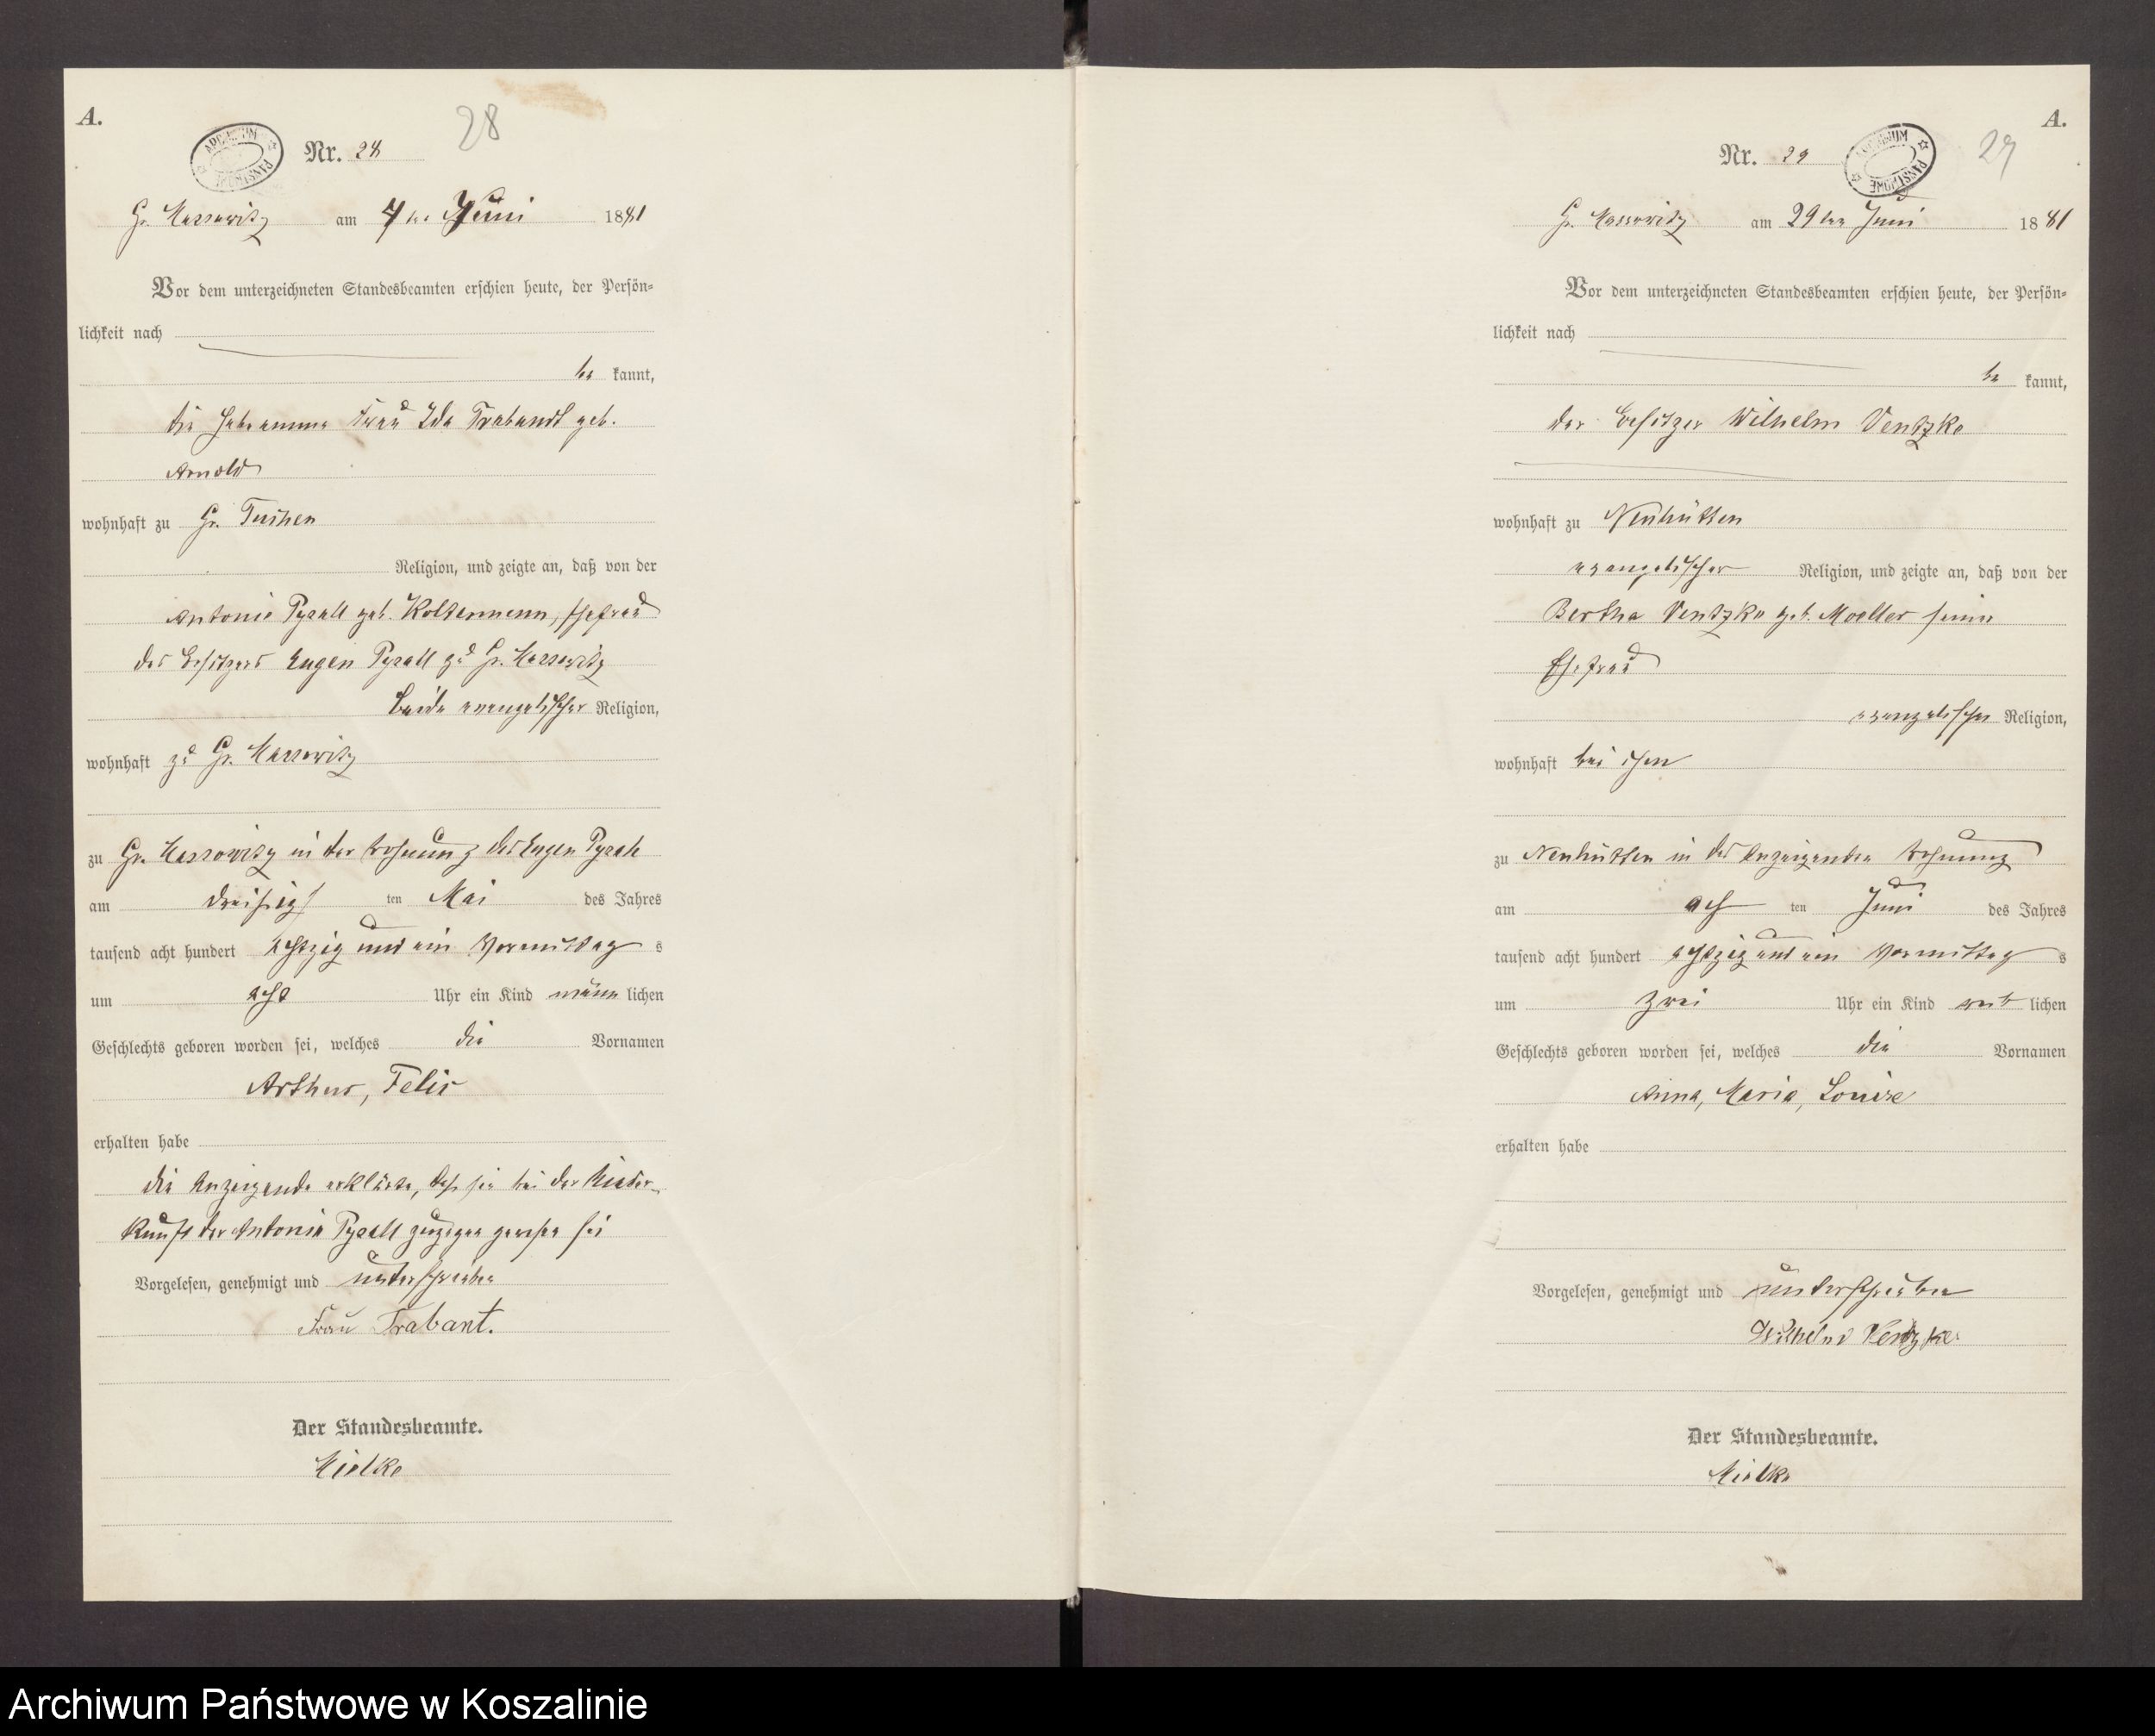 A.
Nr. 28
28
Gr. Massowitz am 4ten Juni 1881
Vor dem unterzeichneten Standesbeamten erschien heute, der Persön=
lichkeit nach
be kannt,
die Hebeamme Frau Ida Trabandt geb.
Arnold
wohnhaft zu Gr. Tuchen
Religion, und zeigte an, daß von der
Antonie Pysall geb. Koltermann, Ehefrau
des Besitzers Eugen Pysall zu Gr. Massowitz
beide evangelischer Religion,
wohnhaft zu Gr. Massowitz
zu Gr. Massowitz in der Wohnung des Eugen Pysall
am dreißigs ten Mai des Jahres
tausend acht hundert achtzig und ein Vormittag s
um acht Uhr ein Kind männ lichen
Geschlechts geboren worden sei, welches die Vornamen
Arthur, Felix
erhalten habe
die Anzeigende erklärte, daß sie bei der Nieder-
kunft der Antonie Pysall zugegen gewesen sei
Vorgelesen, genehmigt und unterschrieben
Frau Trabant.
Der Standesbeamte.
Mielke
A.
Nr. 29
29
Gr. Massowitz am 29ten Juni 1881
Vor dem unterzeichneten Standesbeamten erschien heute, der Persön=
lichkeit nach
be kannt,
der Besitzer Wilhelm Ventzke
wohnhaft zu Neuhütten
evangelischer Religion, und zeigte an, daß von der
Bertha Ventzke geb. Moeller seiner
Ehefrau
evangelischer Religion,
wohnhaft bei ihm
zu Neuhütten in der Anzeigenden Wohnung
am ach ten Juni des Jahres
tausend acht hundert achtzig und ein Vormittag s
um zwei Uhr ein Kind weib lichen
Geschlechts geboren worden sei, welches die Vornamen
Anna, Maria, Louise
erhalten habe
Vorgelesen, genehmigt und unterschrieben
Wilhelm Ventzke
Der Standesbeamte.
Mielke
Archiwum Państwowe w Koszalinie